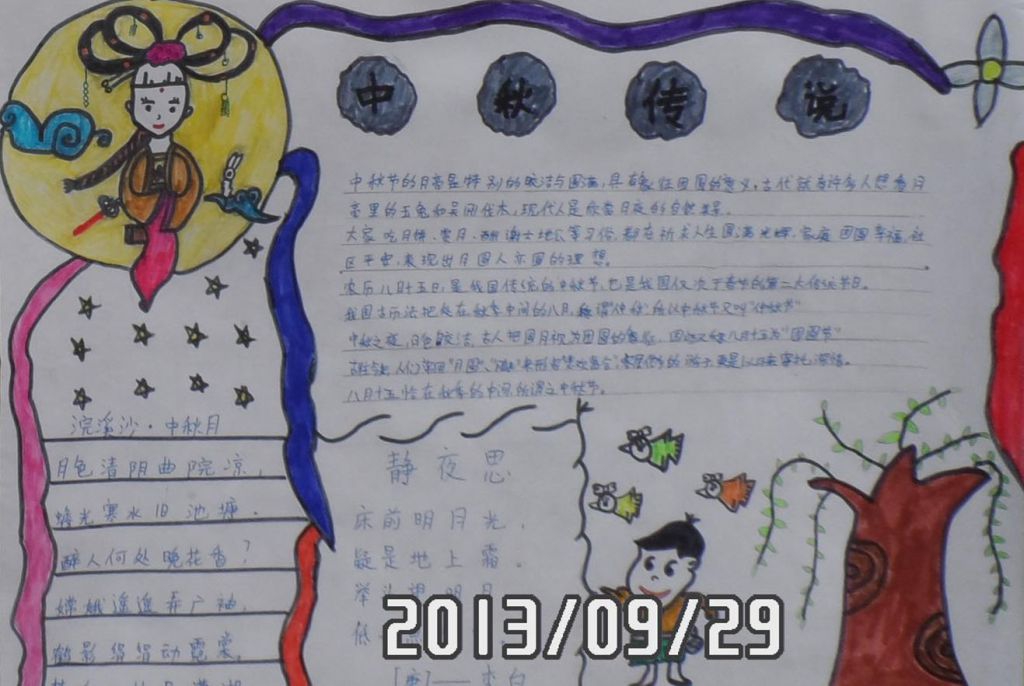 中秋传说
中秋节的月亮是特别的皎洁与圆满,具有象征团圆的意义,古代就有许多人想看月
亮里的玉兔和吴刚伐木,现代人是欣赏月夜的自然美景。
大家吃月饼、赏月、酬谢土地公等习俗,都在祈求人生圆满光辉、家庭团圆幸福,社
区平安,表现出月圆人亦圆的理想。
农历八月十五日,是我国传统的中秋节,也是我国仅次于春节的第二大传统节日。
我国古历法把处在秋季中间的八月,称谓"仲秋"所以中秋节又叫"仲秋节"
中秋之夜,月色皎洁,古人把圆月视为团圆的象征,因此又称八月十五为"团圆节"
八月十五恰在秋季的中间所谓之中秋节。
浣溪沙·中秋月
月色清阴曲院凉,
蟾光寒水旧池塘。
醉人何处晚花香?
嫦娥遥遥弄广袖,
鹤影绢绢动霓裳。
静夜思
床前明月光,
疑是地上霜。
举头望明月
低
[唐]——李白
2013/09/29